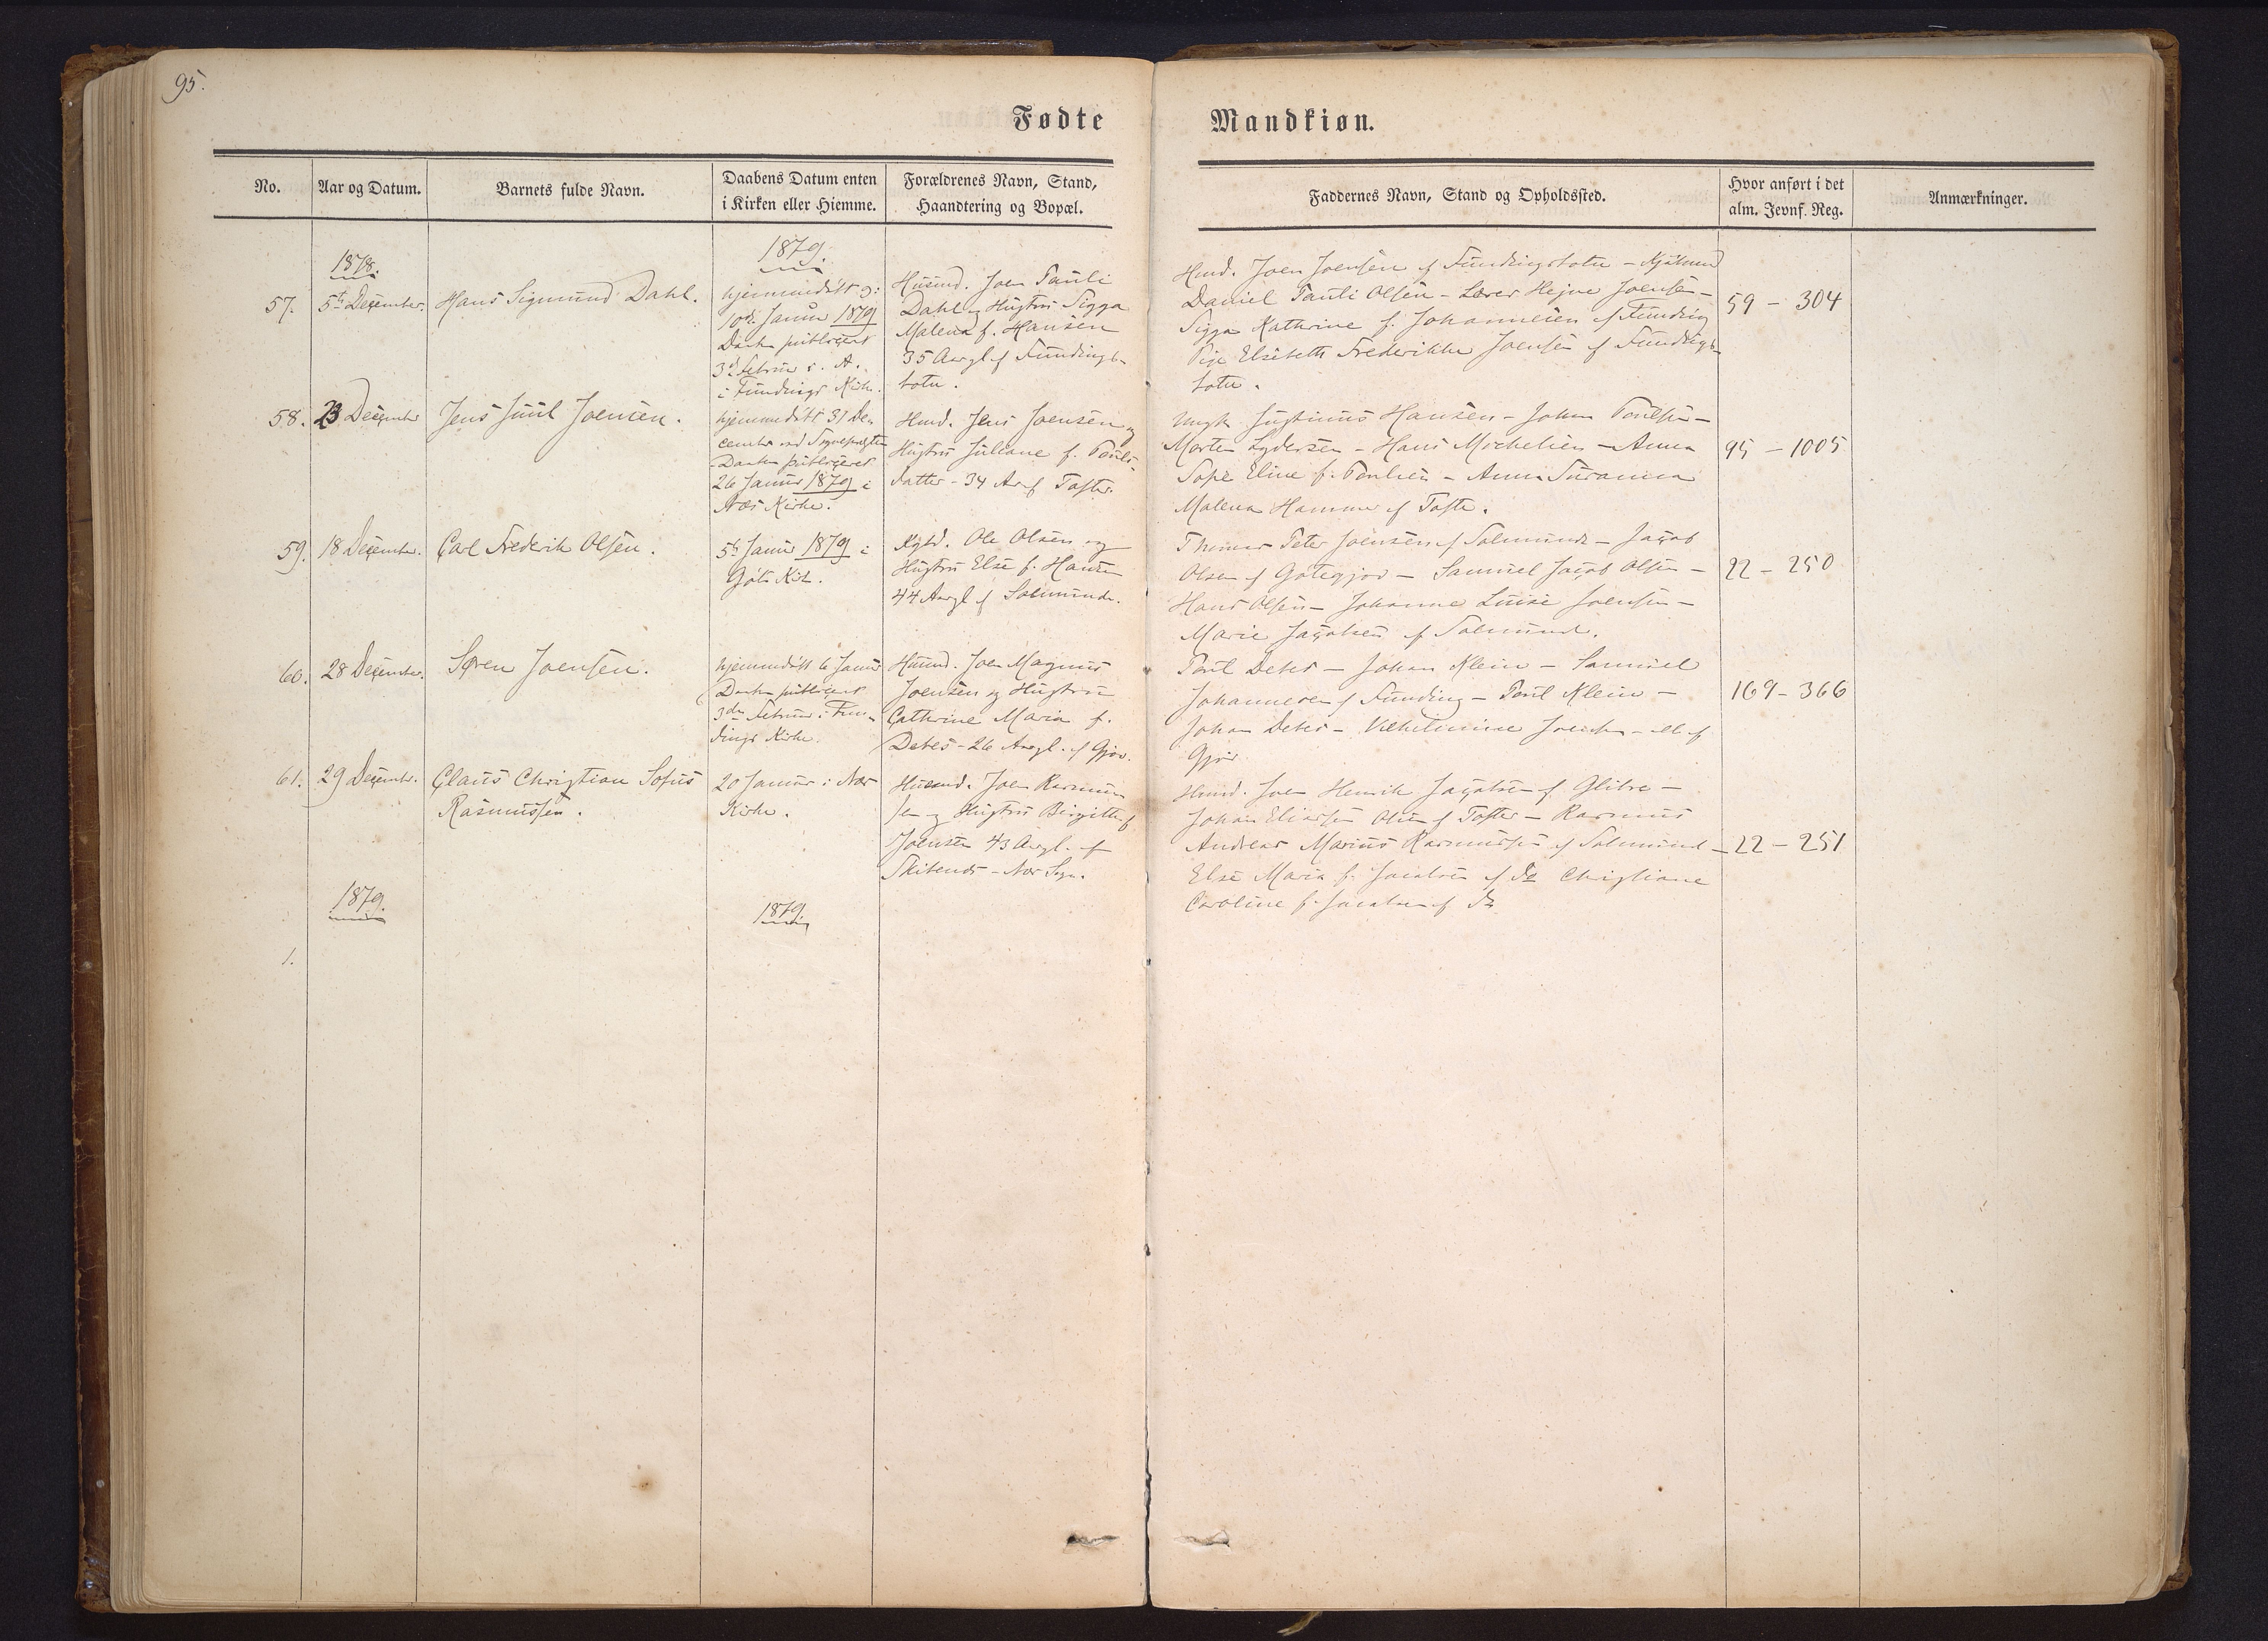 95.
Fødte Mandkiøn.
No.
Aar og Datum.
Barnets fulde Navn.
Daabens Datum enten
i Kirken eller Hiemme.
Forældrenes Navn, Stand,
Haandtering og Bopæl.
Faddernes Navn, Stand og Opholdssted.
Hvor anført i det
alm. Jevnf. Reg.
Anmærkninger.
1878.
1879.
57.
5te December.
Hans Sigmund Dahl.
hjemmedøbt
10de Januar 1879
Daaben publiceret
3die Februar s. A.
i Fundings Kirke.
Husmd. Joen Pauli
Dahl og Hustru Sigga
Malena f. Hansen
35 Aargl. af Fundings-
botn.
Hmd. Joen Joensen af Fundingsbotn -
Daniel Pauli Olsen - Lærer Hejne Joensen -
Sigga Kathrine f. Johannesen af Funding
Pige Elsebeth Frederikke Joensen af Fundings-
botn.
59 - 304
58.
23 December
Jens Juul Joensen.
hjemmedøbt 31 De-
cember ved
Daaben publiceret
26 Januar 1879 i
Næs Kirke.
Hmd. Jens Joensen og
Hustru Juliane f. Pouls-
datter - 34 Aar af Tofter.
Ungk. Justinus Hansen - Johan Poulsen -
Morten Lydersen - Hans Michelsen - Anna
Sofie Eline f. Poulsen - Anna Susanna
Malena Hammer af Tofte.
95 - 1005
59.
18 December.
Carl Frederik Olsen.
5te Januar 1879 i
Gøte Kirke.
Ole Olsen og
Hustru Else f. Hansen
44 Aargl af Solmunde.
Thomas Peter Joensen af Solmunde - Jacob
Olsen af Gøtegjov - Samuel Jacob Olsen -
Hans Olsen - Johanne Luise Joensen -
Marie Jacobsen af Solmunde.
22 - 250
60.
28 December.
Søren Joensen.
hjemmedøbt 6 Januar
Daaben publiceret
3die Februar i Fun-
dings Kirke.
Husmd. Joen Magnus
Joensen og Hustru
Cathrine Maria f.
Debes - 26 Aargl. af Gjov.
Poul Debes - Johan Klein - Samuel
Johannesen af Funding - Poul Klein -
Johan Debes - Vilhelmine Joensen - alle af
Gjov.
169 - 366
61.
29 December.
Claus Christian Sofus
Rasmussen.
20 Januar i Næs
Kirke.
Husmd. Joen Rasmus-
sen og Hustru Birgitte f.
Joensen 43 Aargl. af
Skibenes - Næs Sogn.
Husmd. Joen Henrik Jacobsen af Glibre -
Johan Eliassen Olsen af Tofter - Rasmus
Andreas Marius Rasmussen af Solmunde -
Else Maria f. Jacobsen af do Christiane
Caroline f. Jacobsen af do
22 - 251
1879.
1879.
1.